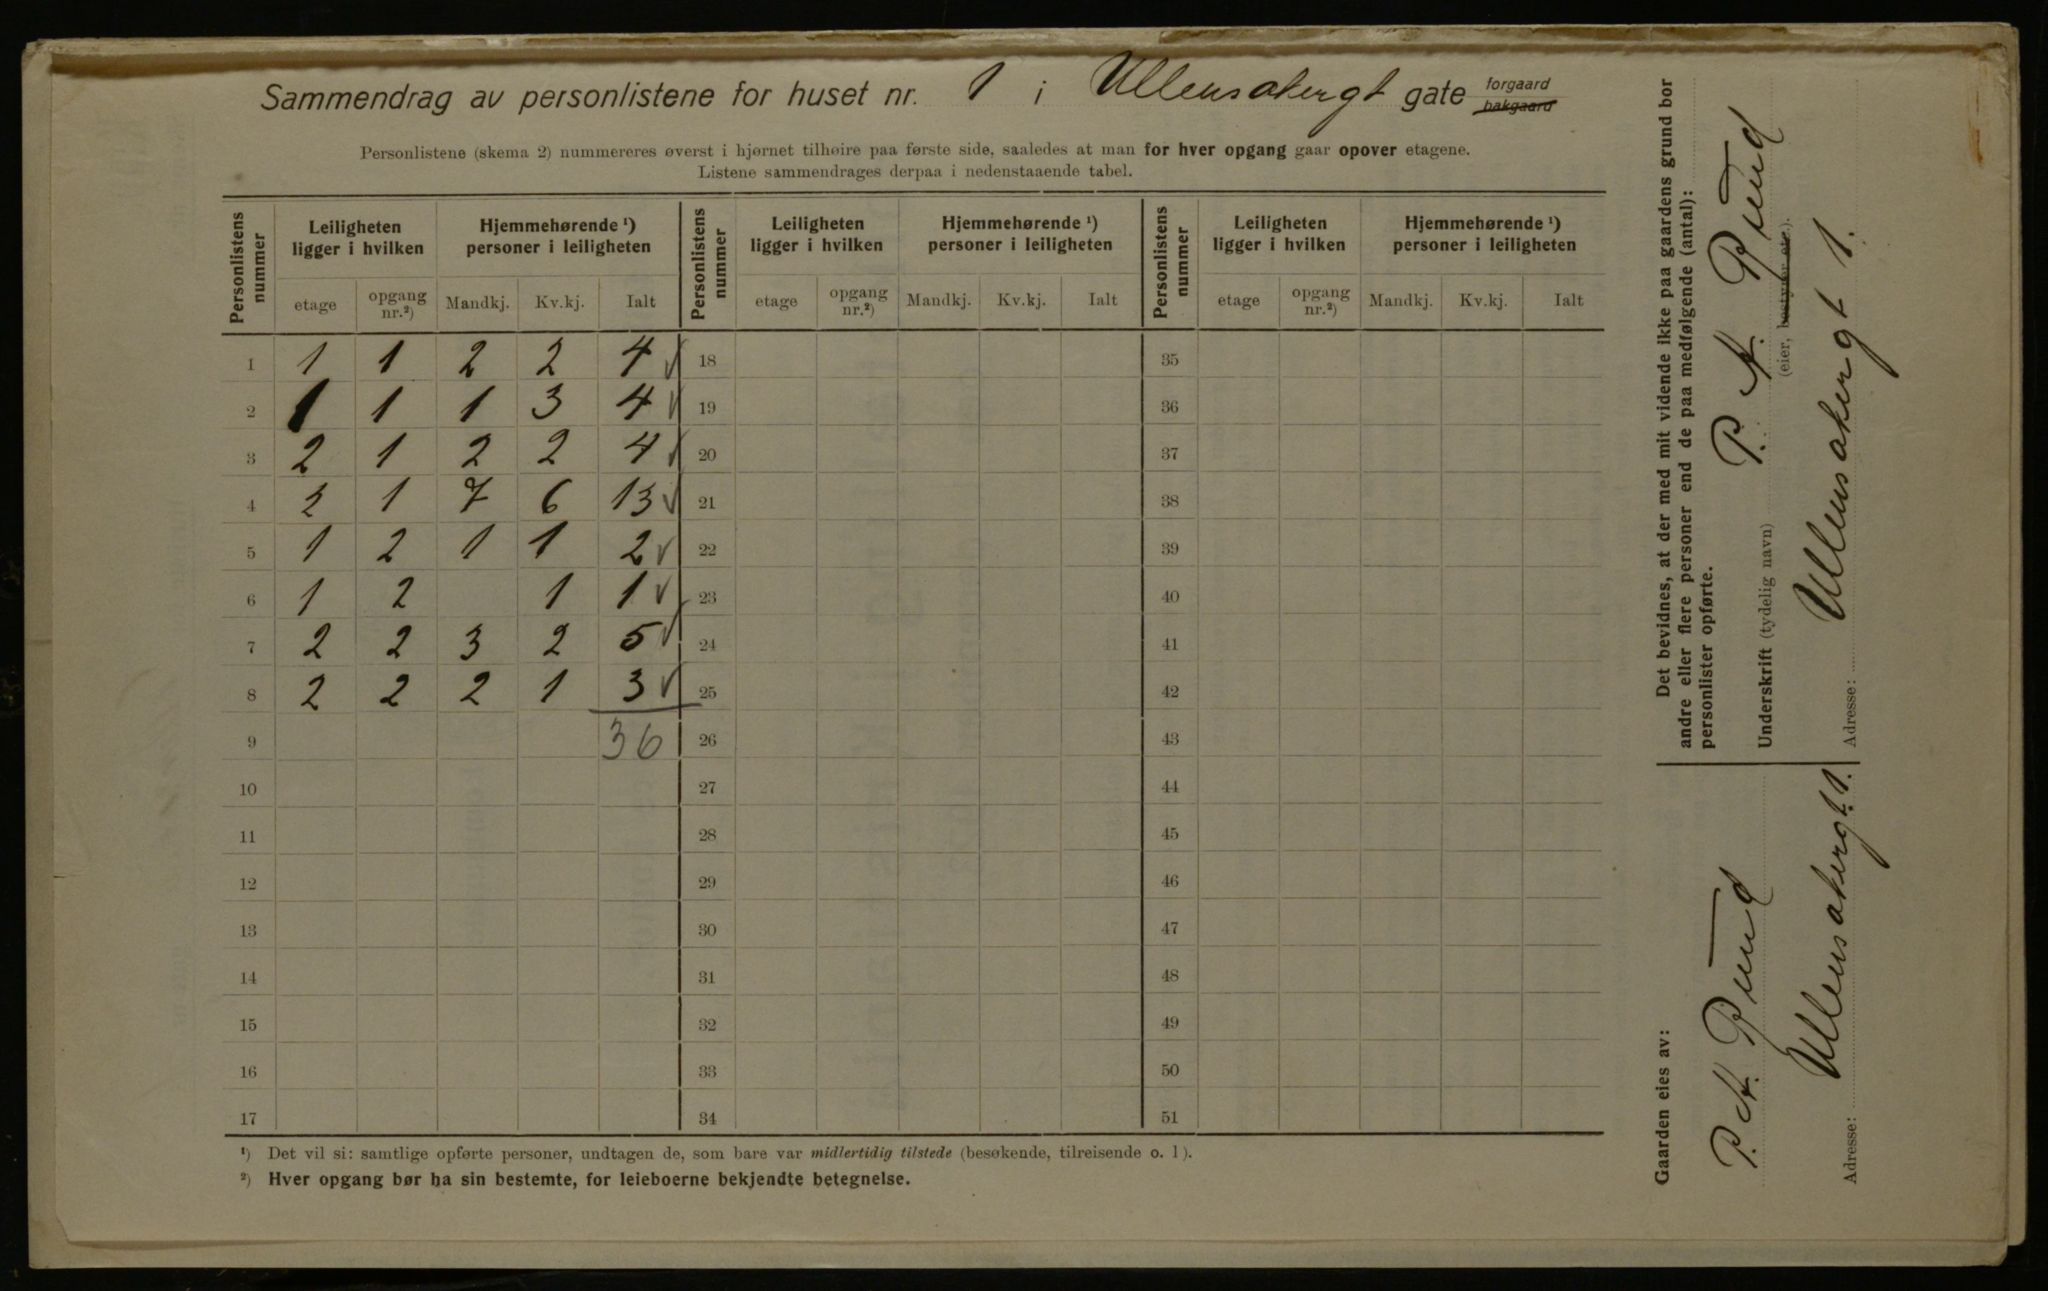 Sammendrag av personlistene for huset nr. 1 i Ullensakergt gate forgaard bakgaard
Personlistene (skema 2) nummereres øverst i hjørnet tilhøire paa første side, saaledes at man for hver opgang gaar opover etagene.
Listene sammendrages derpaa i nedenstaaende tabel.
Personlistens nummer | Leiligheten ligger i hvilken | Hjemmehørende ¹) personer i leiligheten | Personlistens nummer | Leiligheten ligger i hvilken | Hjemmehørende ¹) personer i leiligheten | Personlistens nummer | Leiligheten ligger i hvilken | Hjemmehørende ¹) personer i leiligheten
etage | opgang nr.²) | Mandkj. | Kv.kj. | Ialt | etage | opgang nr.²) | Mandkj. | Kv.kj. | Ialt | etage | opgang nr.²) | Mandkj. | Kv.kj. | Ialt
1 1 1 2 2 4 ✓ 18 35
2 1 1 1 3 4 ✓ 19 36
3 2 1 2 2 4 ✓ 20 37
4 2 1 7 6 13 ✓ 21 38
5 1 2 1 1 2 ✓ 22 39
6 1 2 1 1 ✓ 23 40
7 2 2 3 2 5 ✓ 24 41
8 2 2 2 1 3 ✓ 25 42
9 36 26 43
10 27 44
11 28 45
12 29 46
13 30 47
14 31 48
15 32 49
16 33 50
17 34 51
¹) Det vil si: samtlige opførte personer, undtagen de, som bare var midlertidig tilstede (besøkende, tilreisende o. l).
²) Hver opgang bør ha sin bestemte, for leieboerne bekjendte betegnelse.
Det bevidnes, at der med mit vidende ikke paa gaardens grund bor
andre eller flere personer end de paa medfølgende (antal):
personlister opførte.
Underskrift (tydelig navn) P. A. Ruud
(eier, bestyrer etc.).
Adresse: Ullensakergt 1.
Gaarden eies av:
P. A. Ruud
Adresse: Ullensakergt. 1.